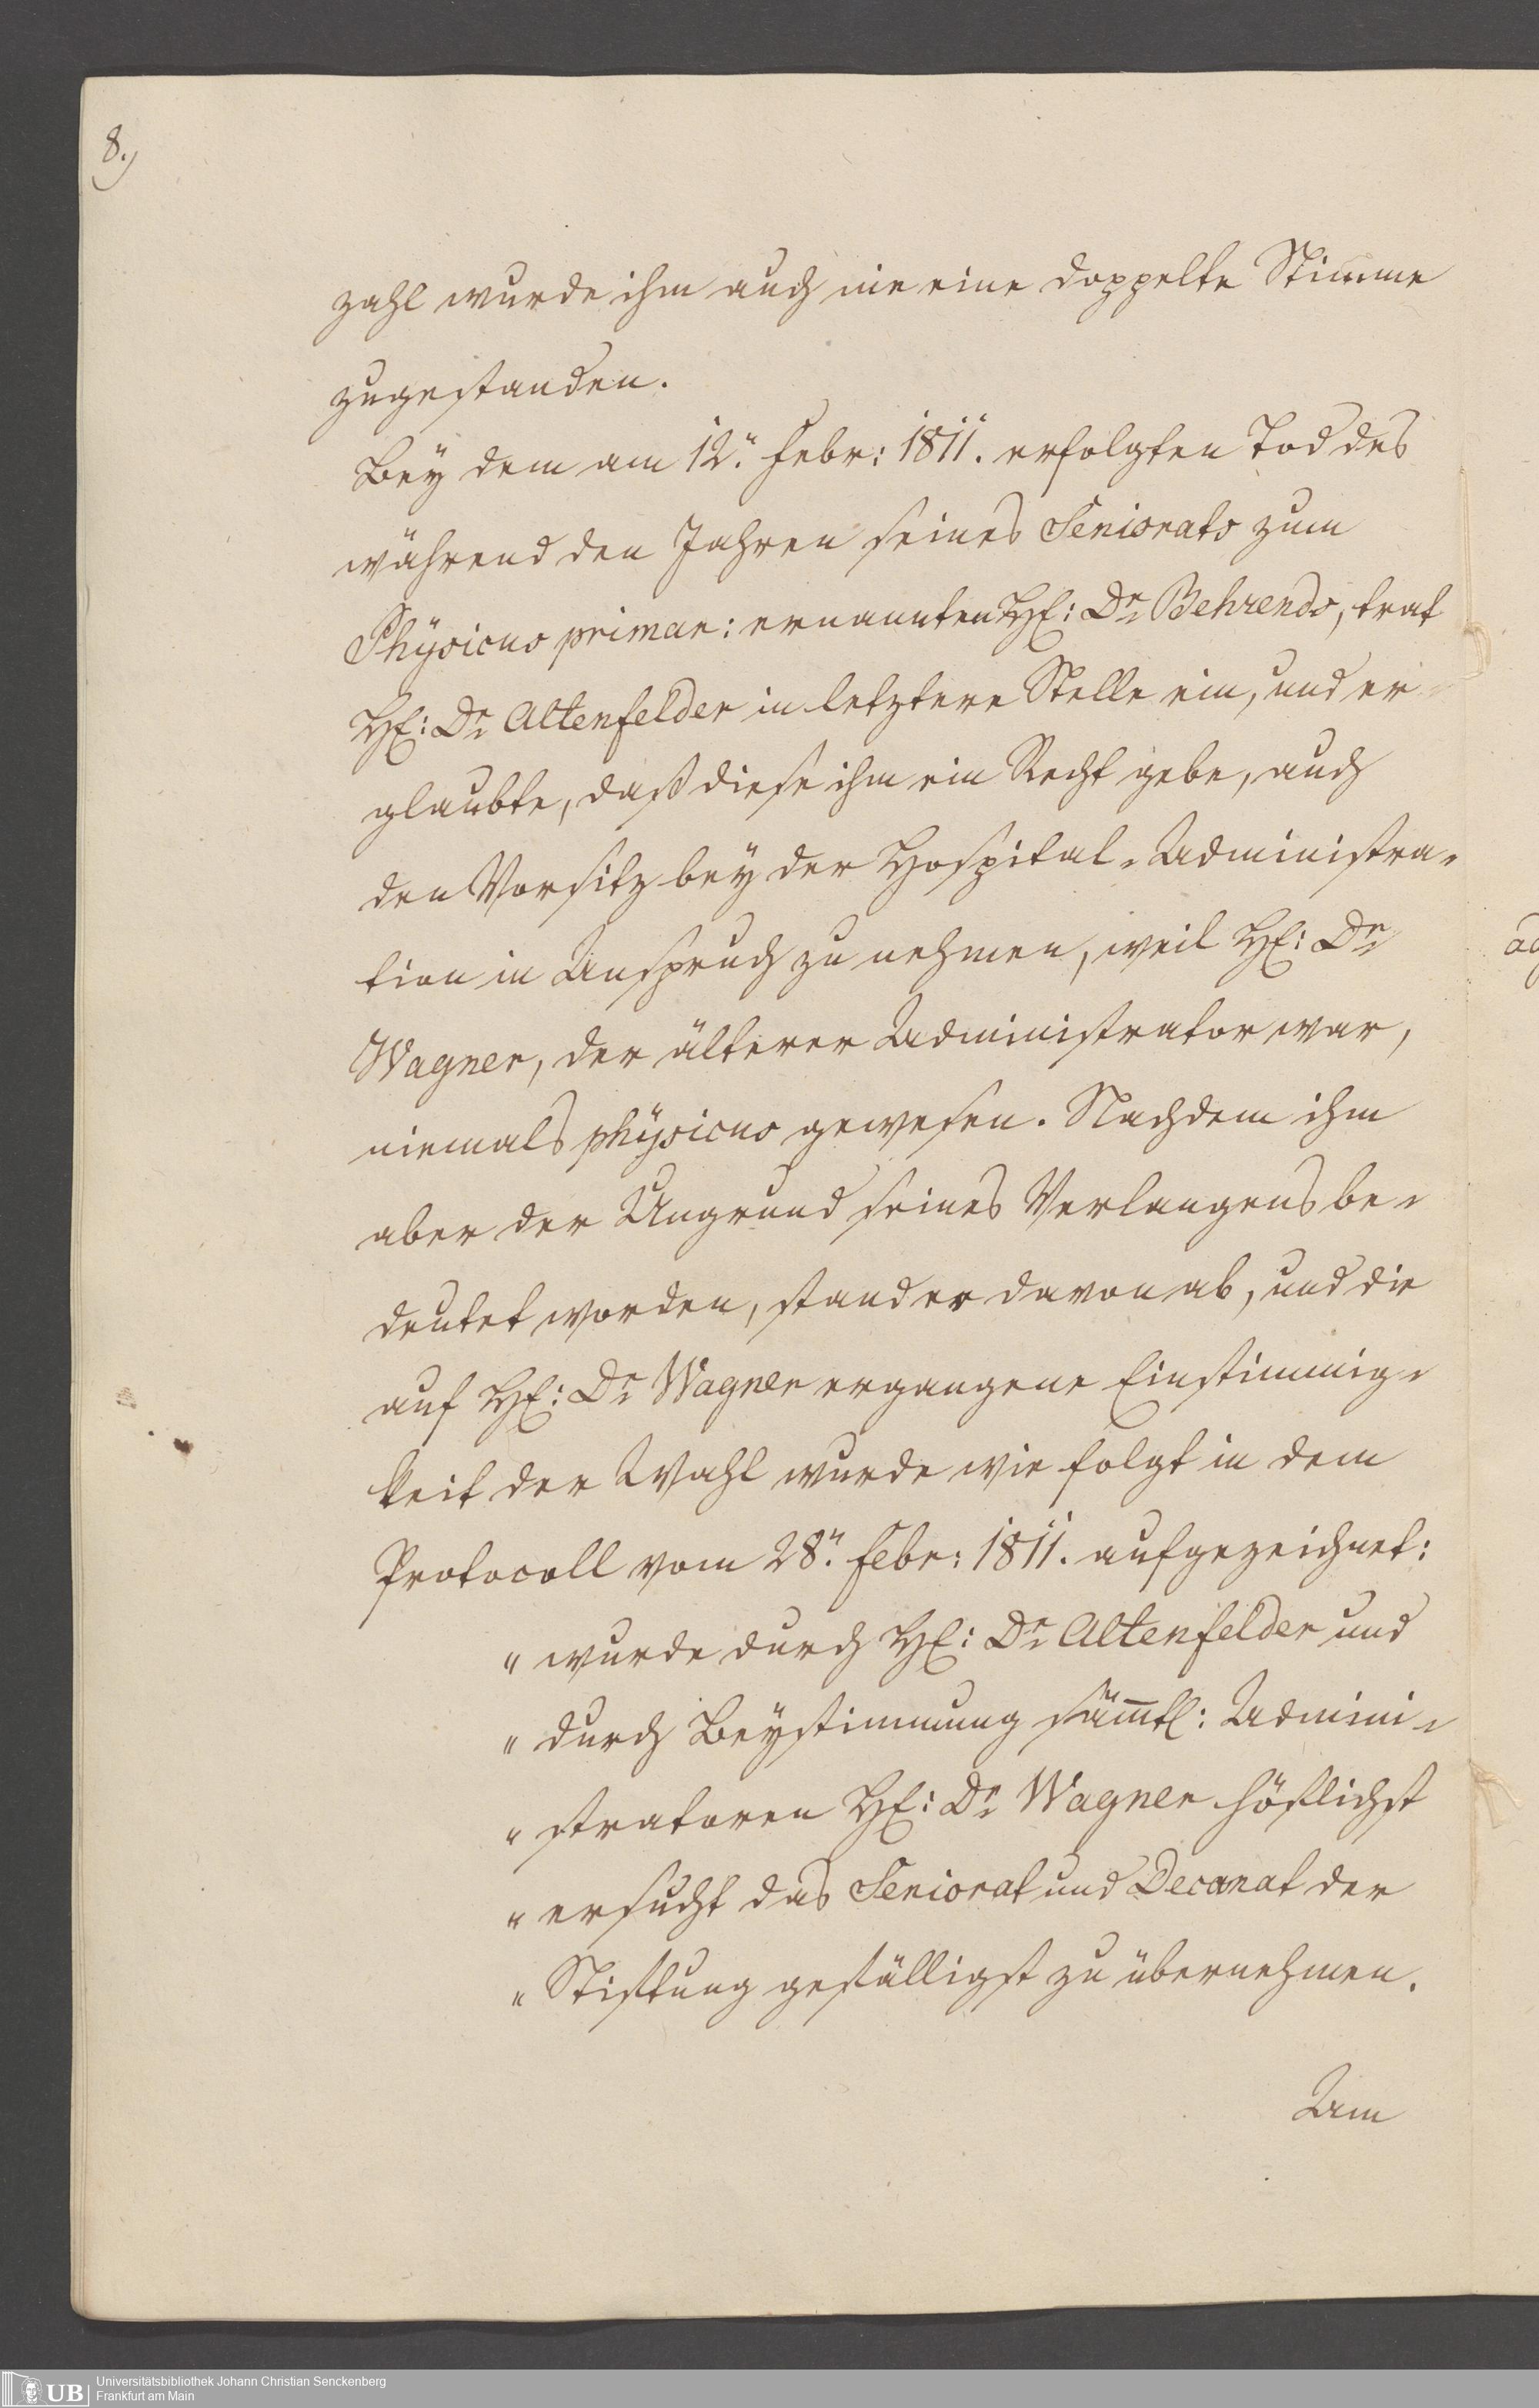 8.)
zahl wurde ihm auch nie eine doppelte Stimme
zugestanden.
Bey dem am 12.ⁿ Febr: 1811. erfolgten Tod des
während den Jahren seines Seniorats zum
Physicus primar: ernannten H: Dr Behrends, trat
H: Dr Altenfelder in letztere Stelle ein, und er
glaubte, daß diese ihm ein Recht gebe, auch
den Vorsitz bey der Hospital-Administra-
tion in Anspruch zu nehmen, weil H: Dr
Wagner, der älterer Administrator war,
niemals physicus gewesen. Nachdem ihm
aber der Ungrund seines Verlangens be-
deutet worden, stand er davon ab, und die
auf H: Dr Wagner ergangene Einstimmig-
keit der Wahl wurde wie folgt in dem
Protocoll vom 28.ⁿ Febr: 1811. aufgezeichnet:
" wurde durch H: Dr Altenfelder und
" durch Beystimmung sämtl: Admini-
" stratoren H: Dr Wagner höflichst
" ersucht das Seniorat und Decanat der
" Stiftung gefälligst zu übernehmen.
Um
UB Universitätsbibliothek Johann Christian Senckenberg
Frankfurt am Main